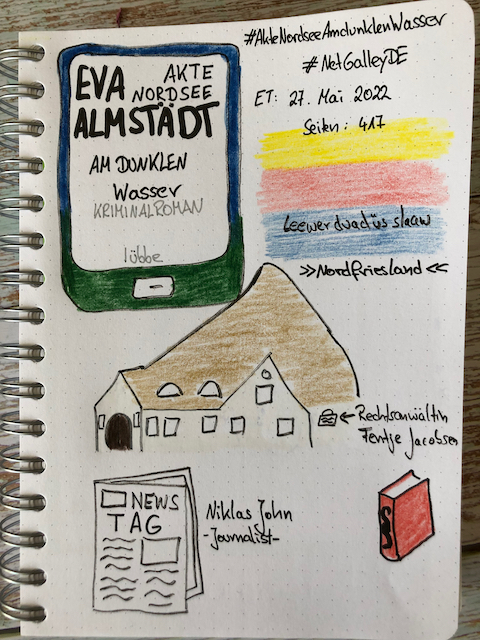 #AkteNordseeAmdunklenWasser
#NetGalleyDE
EVA
AKTE
NORDSEE
ALMSTÄDT
AM DUNKLEN
Wasser
KRIMINALROMAN
lübbe
ET: 27. Mai 2022
Seiten: 417
Leewer duad üs slaaw
»Nordfriesland«
←Rechtsanwältin
Fentje Jacobsen
NEWS
TAG
Niklas John
-Journalist-
§